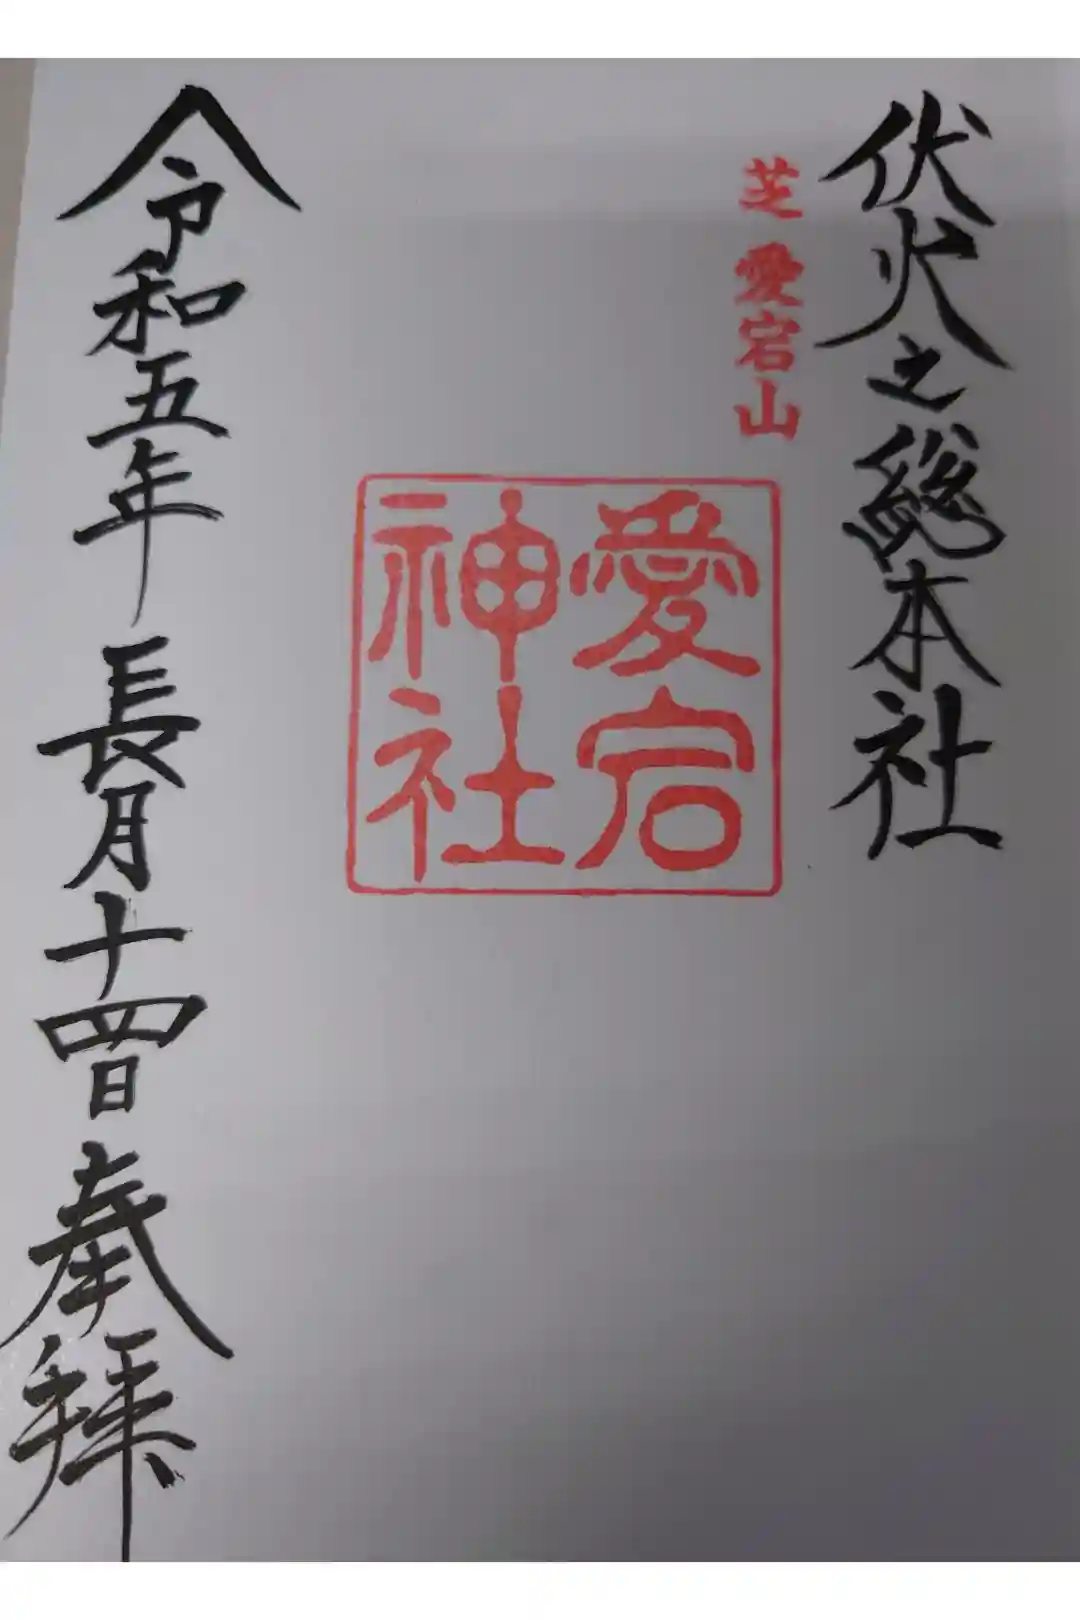 伏火之総本社
芝 愛宕山
愛宕
神社
令和五年 長月十四日 奉拝